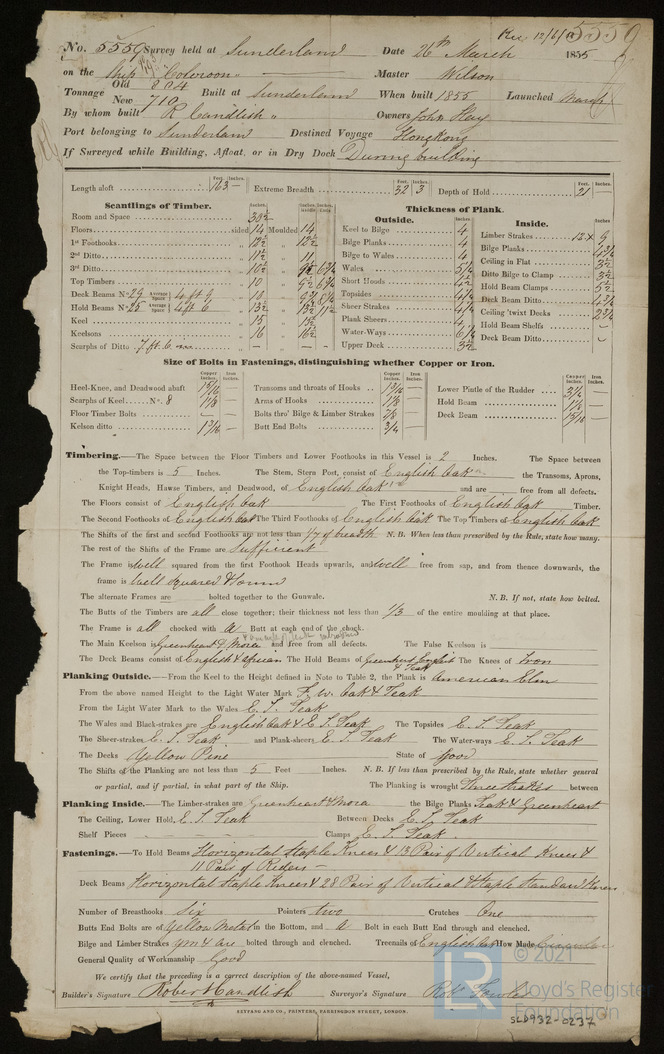 Rec 12/6/ 5559
No. 5559 Survey held at Sunderland Date 26th March 1855
on the Ship "Coleroon" Master Wilson
Tonnage Old 804 New 710 Built at Sunderland When built 1855 Launched March
By whom built R Candlish Owners John Hay
Port belonging to Sunderland Destined Voyage Hongkong
If Surveyed while Building, Afloat, or in Dry Dock During building
Feet. Inches. Feet. Inches. Feet. Inches.
Length aloft 163 — Extreme Breadth 32 3 Depth of Hold 21 —
Scantlings of Timber.
Thickness of Plank.
Outside. Inside.
Room and Space 30½
Floors sided 14 Moulded 14
1st Foothooks 12½ " 12½
2nd Ditto 11½ " 11
3rd Ditto 10½ " 9½ 6¾
Top Timbers 10 " 9½ 6¾
Deck Beams No. 29 Average Space 4 ft 9 " 10
Hold Beams No. 25 Average Space 4 ft 6 " 13½
Keel " 15 " 15½
Keelsons " 16 " 16½
Scarphs of Ditto 7 ft 6 in " — " — —
Keel to Bilge 4
Bilge Planks 4
Bilge to Wales 4
Wales 5¼
Short Hoods 4½
Topsides 4
Sheer Strakes 4
Plank Sheers 4
Water-Ways 6¼
Upper Deck 3½
Limber Strakes 12 x 9
Bilge Planks
Ceiling in Flat 3½
Ditto Bilge to Clamp 3½
Hold Beam Clamps 5½
Deck Beam Ditto 4¾
Ceiling 'twixt Decks 2¾
Hold Beam Shelfs –
Deck Beam Ditto –
Size of Bolts in Fastenings, distinguishing whether Copper or Iron.
Copper Inches Iron Inches Copper Inches Iron Inches Copper Inches Iron Inches
Heel-Knee, and Deadwood abaft 1 3/16 —
Scarphs of Keel No. 8 1⅛ —
Floor Timber Bolts — —
Kelson ditto 1 3/16 —
Transoms and throats of Hooks 1 3/16 —
Arms of Hooks 1⅛ —
Bolts thro' Bilge & Limber Strakes ⅞ —
Butt End Bolts ¾ —
Lower Pintle of the Rudder 3¼ —
Hold Beam 1⅛ —
Deck Beam 15/16 —
Timbering.—The Space between the Floor Timbers and Lower Foothooks in this Vessel is 2 Inches. The Space between
the Top-timbers is 5 Inches. The Stem, Stern Post, consist of English Oak the Transoms, Aprons,
Knight Heads, Hawse Timbers, and Deadwood, of English Oak and are free from all defects.
The Floors consist of English Oak The First Foothooks of English Oak Timber.
The Second Foothooks of English Oak The Third Foothooks of English Oak The Top Timbers of English Oak
The Shifts of the first and second Foothooks are not less than 1/7 of breadth N.B. When less than prescribed by the Rule, state how many.
The rest of the Shifts of the Frame are Sufficient
The Frame is well squared from the first Foothook Heads upwards, and well free from sap, and from thence downwards, the
frame is well squared & sound
The alternate Frames are bolted together to the Gunwale. N.B. If not, state how bolted.
The Butts of the Timbers are all close together; their thickness not less than 1/3 of the entire moulding at that place.
The Frame is all chocked with a Butt at each end of the chock.
The Main Keelson is Greenheart & Mora and free from all defects. The False Keelson is
The Deck Beams consist of English & African The Hold Beams of Greenheart English & Teak The Knees of Iron
Planking Outside.—From the Keel to the Height defined in Note to Table 2, the Plank is American Elm
From the above named Height to the Light Water Mark F. W. Oak & Teak
From the Light Water Mark to the Wales E. I. Teak
The Wales and Black-strakes are English Oak & E. I. Teak The Topsides E. I. Teak
The Sheer-strakes E. I. Teak and Plank-sheers E. I. Teak The Water-ways E. I. Teak
The Decks Yellow Pine State of Good
The Shifts of the Planking are not less than 5 Feet Inches. N.B. If less than prescribed by the Rule, state whether general
or partial, and if partial, in what part of the Ship. The Planking is wrought Three strakes between
Planking Inside.—The Limber-strakes are Greenheart & Mora the Bilge Planks Teak & Greenheart
The Ceiling, Lower Hold, E. I. Teak Between Decks E. I. Teak
Shelf Pieces Clamps E. I. Teak
Fastenings.—To Hold Beams Horizontal Staple Knees & 13 Pair of Vertical Knees &
11 Pair of Riders
Deck Beams Horizontal Staple Knees & 28 Pair of Vertical & Staple Standard Knees
Number of Breasthooks Six Pointers two Crutches One
Butts End Bolts are of Yellow Metal in the Bottom, and A Bolt in each Butt End through and clenched.
Bilge and Limber Strakes ym & are bolted through and clenched. Treenails of English Oak How Made Circular
General Quality of Workmanship Good
We certify that the preceding is a correct description of the above-named Vessel,
Builder's Signature Robert Candlish Surveyor's Signature Robt Fowler
SEYFANG AND CO., PRINTERS, FARRINGDON STREET, LONDON.
© 2021
LR
Lloyd's Register
Foundation
SLD932-0237